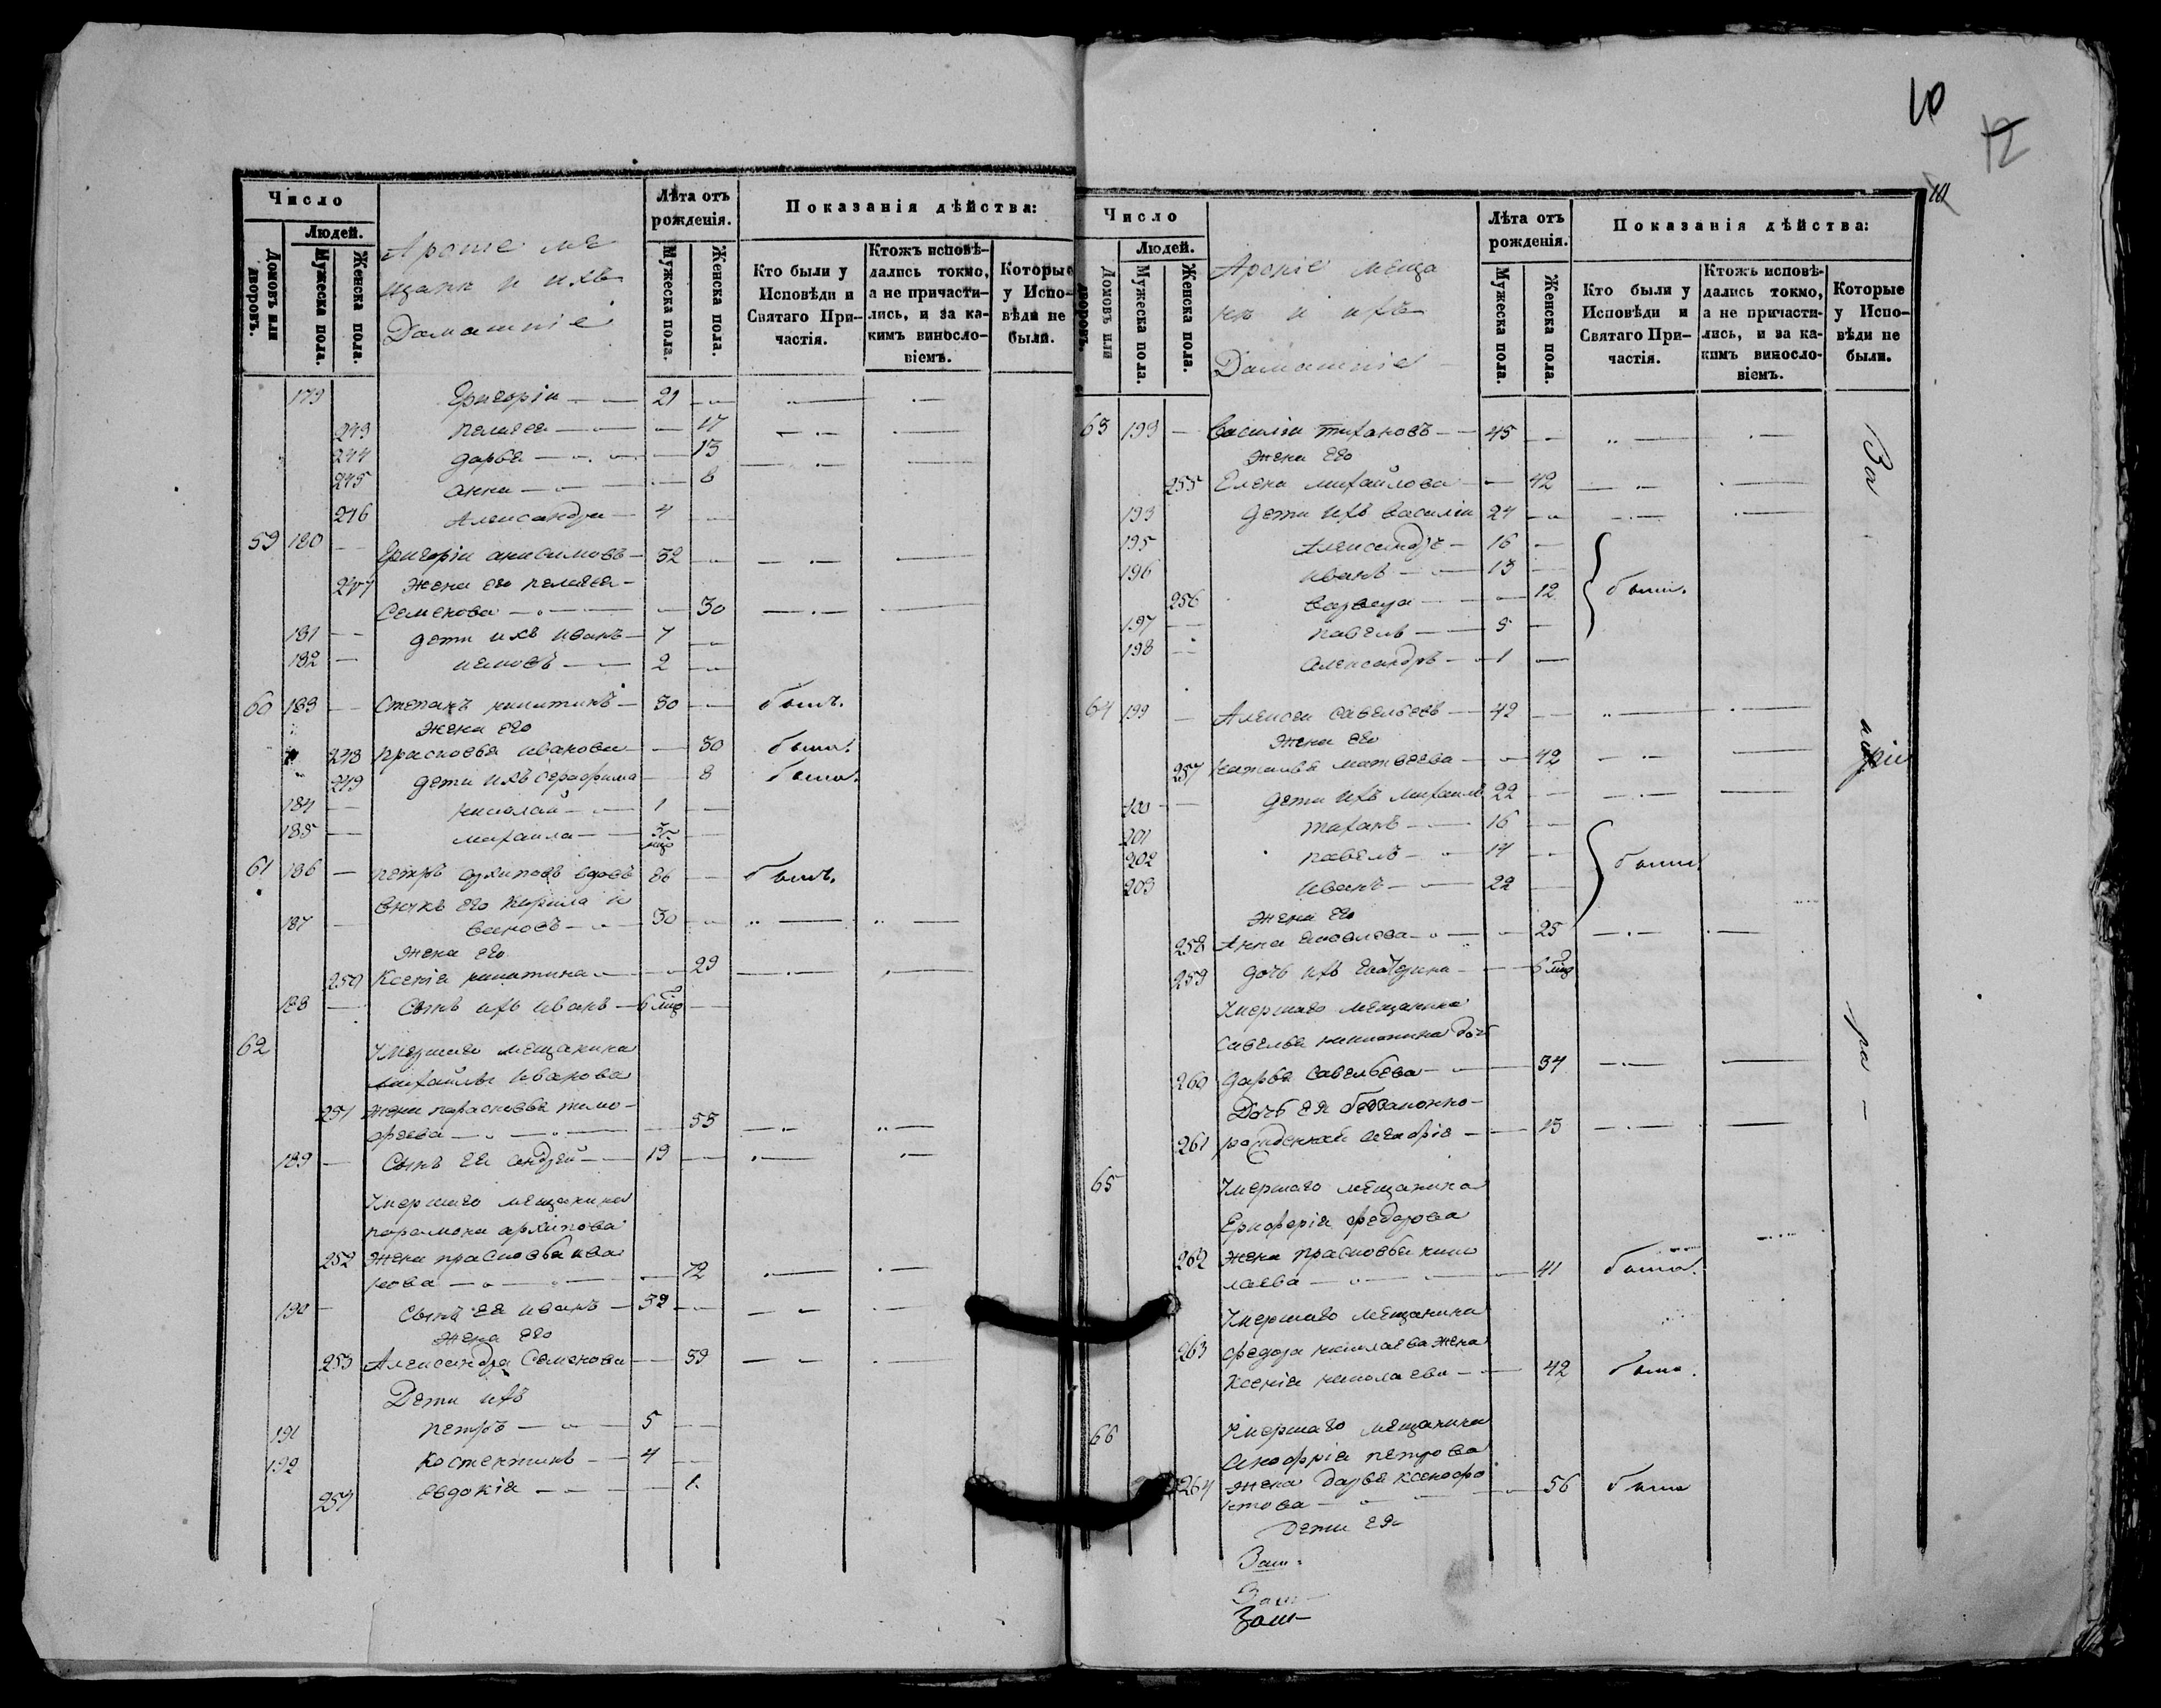 Число
Людей.
Домовъ или дворовъ.
Мужеска пола.
Женска пола.
щанн и ихъ
Домашніе
Лѣта отъ рожденія.
Мужеска пола.
Женска пола.
Показанія дѣйства:
Кто были у Исповѣди и Святаго При-частія.
Ктожъ исповѣ-дались токмо, а не причасти-лись, и за ка-кимъ винослo-віемъ.
Которые у Испо-вѣди не были.
179 Григоріи — 21
243 Пелагея — 17
244 Дарья — 13
245 Анна — 8
246 Александра — 4
59 180 Григоріи Анисимовъ — 32
247 Жена его Пелагея
Семенова — 30
181 Дети ихъ Иванъ — 7
182 2
60 183 Степанъ Никитинъ — 30 былъ.
Жена его
248 Прасковья Иванова — 30 была.
249 Дети ихъ Серафима — 8 была.
184 Николай — 1
185 Михаила —
61 186 Петръ Архиповъ вдовъ 86 былъ.
Внукъ его Кирила И
187 вановъ — 30
Жена его
250 Ксенія Никитина — 29
188 Сынъ ихъ Иванъ — 6 мцо
62 Умершаго мещанина
Михайлы Иванова
251 жена Парасковья Тимо-
феева — 55
189 Сынъ ея Андрей — 19
Умершаго мещанина
Парамона Архипова
252 Жена Прасковья Ива
нова — 72
190 Сынъ ея Иванъ — 32
Жена его
253 Александра Семенова — 39
Дети ихъ
191 Петръ — 5
192 Костентинъ — 4
254 Евдокія — 1.
10
12
Число
Людей.
Домовъ или дворовъ.
Мужеска пола.
Женска пола.
меща
не и ихъ
Домашніе
Лѣта отъ рожденія.
Мужеска пола.
Женска пола.
Показанія дѣйства:
Кто были у Исповѣди и Святаго При-частія.
Ктожъ исповѣ-дались токмо, а не причасти-лись, и за ка-кимъ винослo-віемъ.
Которые у Испо-вѣди не были.
63 193 Василіи Тихановъ — 45
Жена его
255 Елена Михайлова — 42
193 Дети ихъ Василіи 24
195 Александръ — 16
196 Иванъ — 13
256 Варвара — 12 были.
197 Павелъ — 5
198 Александръ — 1
64 199 Алексеи Савельевъ — 42
Жена его
257 Наталья Матвеева — 42
200 Дети ихъ Михаилъ 22
201 Тиханъ — 16
202 Павелъ — 14 были
203 Иванъ — 22
Жена его
258 Анна Яковлева — 25
259 Дочь ихъ Екатерина — 6 мцо
Умершаго мещанина
Савелья Никитина дочь
260 Дарья Савельева — 34
Дочь ея беззаконно-
261 рожденная — 13
65 Умершаго мещанина
Федорова
262 Жена Прасковья Нико
лаева — 41 была.
Умершаго мещанина
263 Федора Николаева жена
Ксенія Николаева — 42 была.
66 Умершаго мещанина
Анофрія Петрова
264 Жена Дарья Ксенофо
нтова — 56 была
Дети ея